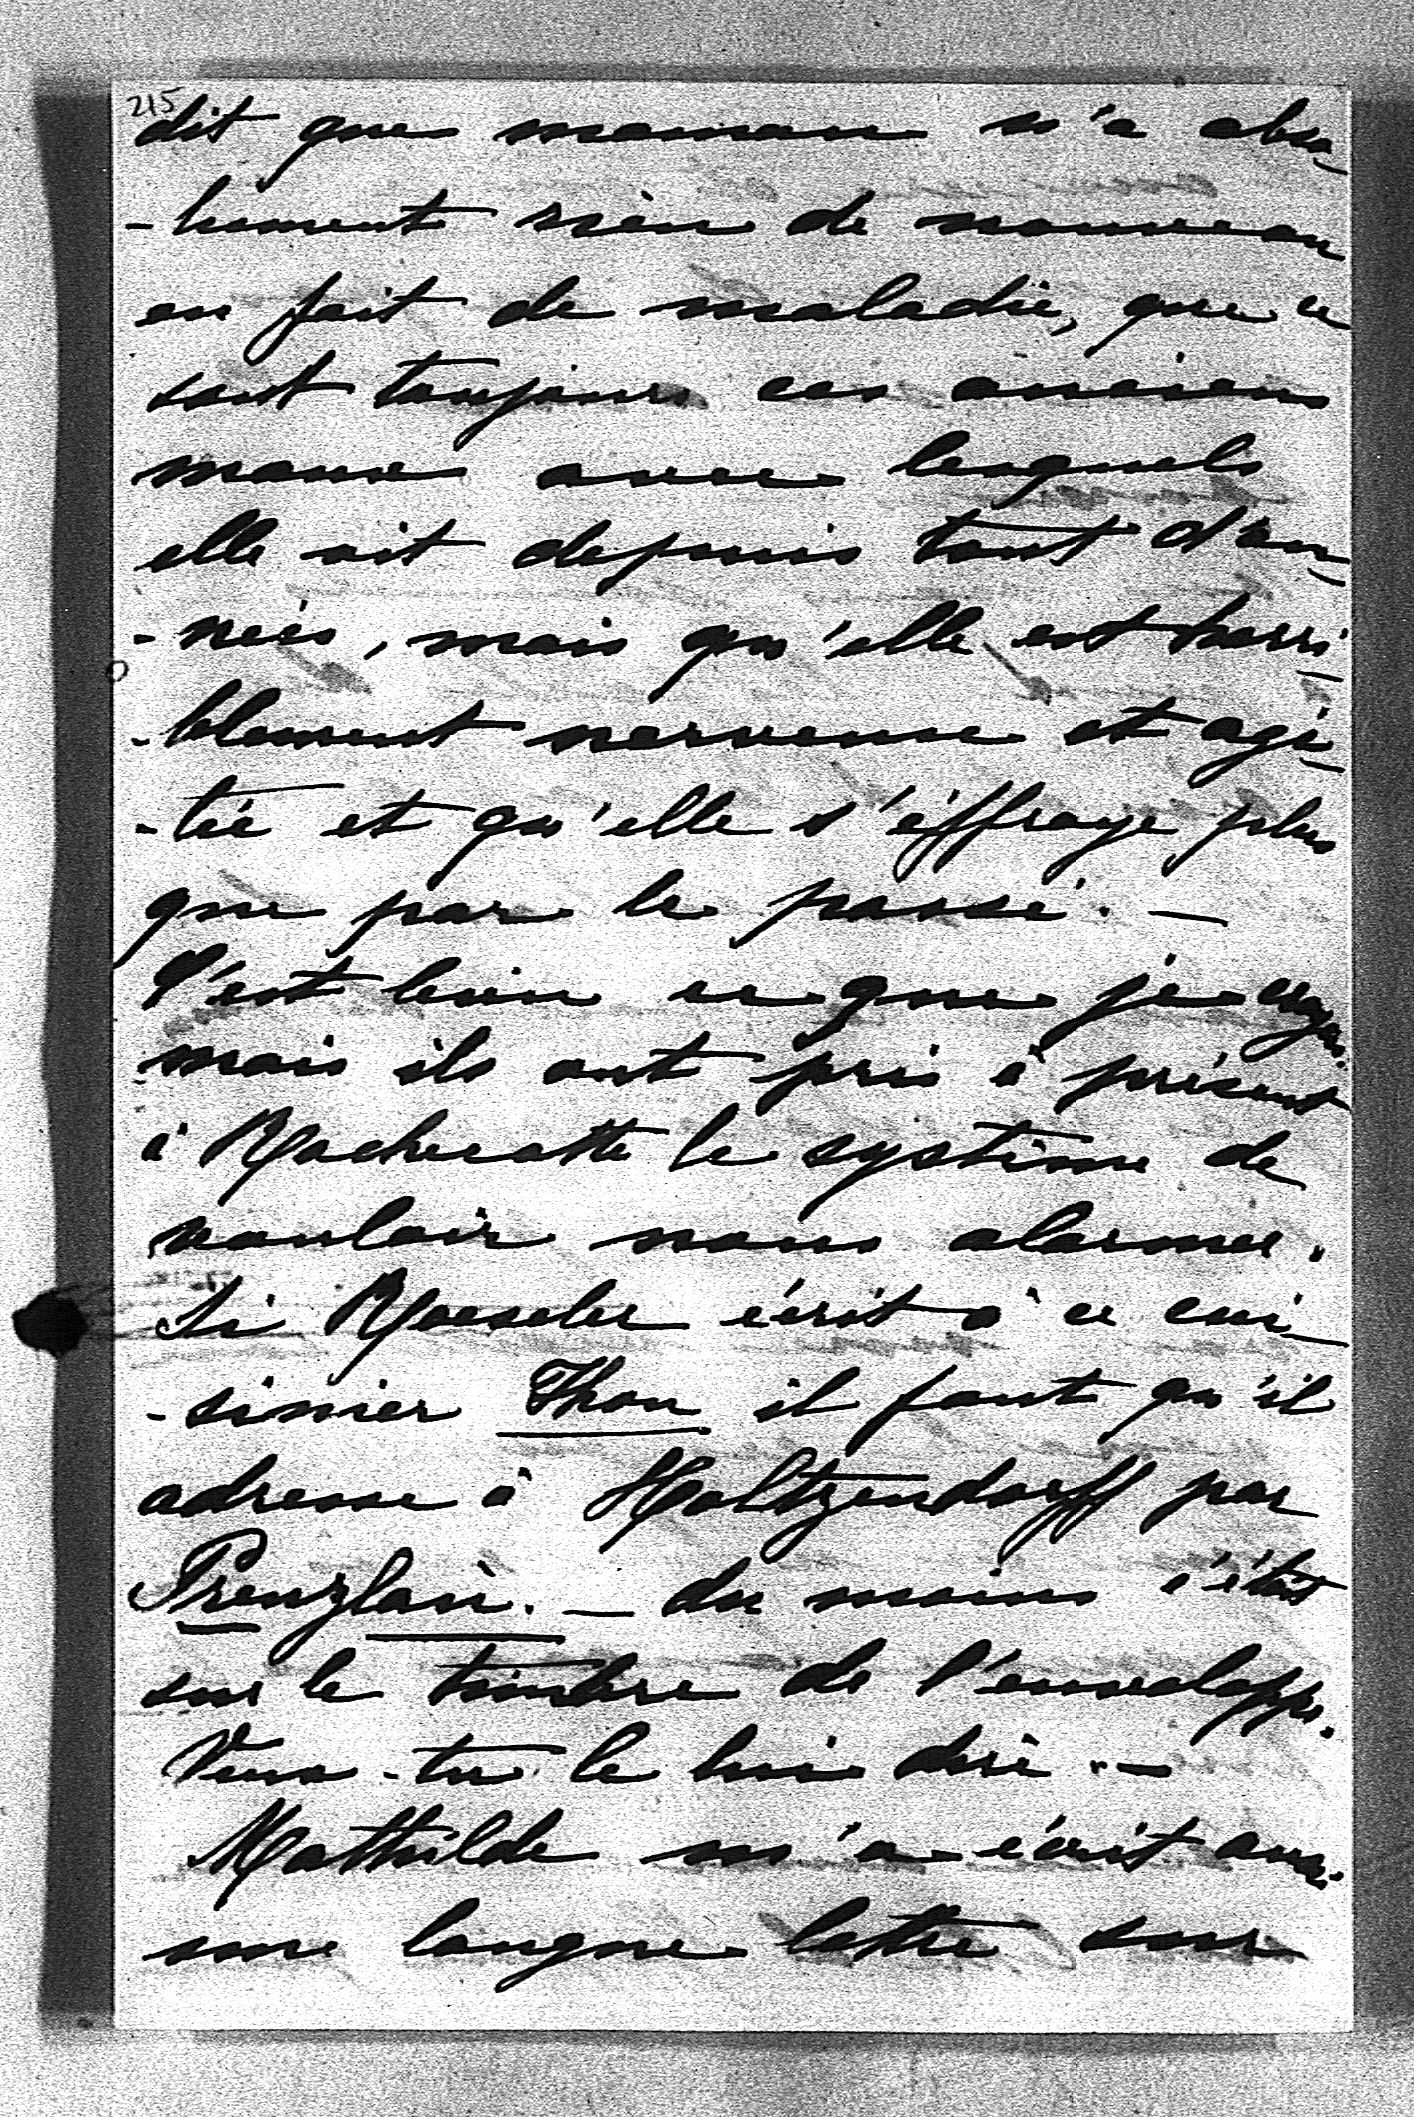 215
dit que maman n'a abso-
-lument rien de nouveau
en fait de maladie, que ce
sont toujours ces anciens
maux avec lesquels
elle vit depuis tant d'an-
-nées, mais qu'elle est horri-
-blement nerveuse et agi-
-tée et qu'elle s'éffraye plus
que par le passé. —
C'est bien ce que je croyais.
mais ils ont pris à présent
à Rochecotte le système de
vouloir nous alarmer.
Si Roeseler écrit à ce cui-
-sinier Thon il faut qu'il
adresse à Holtzendorff par
Prenzlau. — du moins c'était
sur le timbre de l'enveloppe.
Veux-tu le lui dire. —
Mathilde m'a écrit aussi
une longue lettre sur